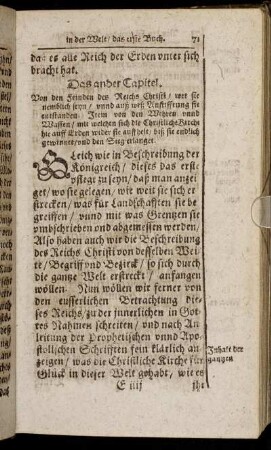 in der Welt / das erste Buch. 71
daß es alle Reich der Erden vnter sich
bracht hat.
Das ander Capitel.
Von den Feinden des Reichs Christi / wer sie
nemblich seyn / vnnd auß weß Anstifftung sie
entstanden. Item von den Wehren vnnd
Waffen / mit welchen sich die Christliche Kirche
hie auff Erden wider sie auffhelt / biß sie endlich
gewinnet / vnd den Sieg erlanget.
Gleich wie in Beschreibung der
Königreich / dieses das erste
pflegt zu seyn / daß man anzei
get / wo sie gelegen / wie weit sie sich er
strecken / was für Landschafften sie be
greiffen / vnnd mit was Grentzen sie
vmbschrieben vnd abgemessen werden /
Also haben auch wir die Beschreibung
des Reichs Christi von desselben Wei
te / Begriff vnd Bezirck / so sich durch
die gantze Welt erstreckt / anfangen
wöllen. Nun wöllen wir ferner von
der eusserlichen Betrachtung die-
ses Reichs / zu der innerlichen in Got
tes Nahmen schreiten / vnd nach An
leitung der Prophetischen vnnd Apo-
stolischen Schrifften fein klärlich an
zeigen / was die Christliche Kirche für
Glück in dieser Welt gehabt / wie es
Inhalt der
gantzen
E iiij
ihr